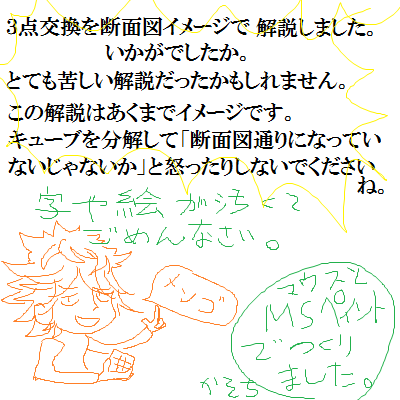 3点交換を断面図イメージで 解説しました。
いかがでしたか。
とても苦しい解説だったかもしれません。
この解説はあくまでイメージです。
キューブを分解して「断面図通りになってい
ないじゃないか」と怒ったりしないでください
ね。
字や絵が汚くて
ごめんなさい。
メンゴ
マウスと
MSペイント
でつくり
ました。